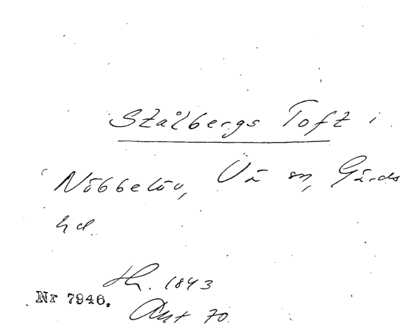 Stålbergs Toft i
Nöbbelöv, Vä sn, Gärds
hd.
Hr. 1843
Nr 7946. Akt 70